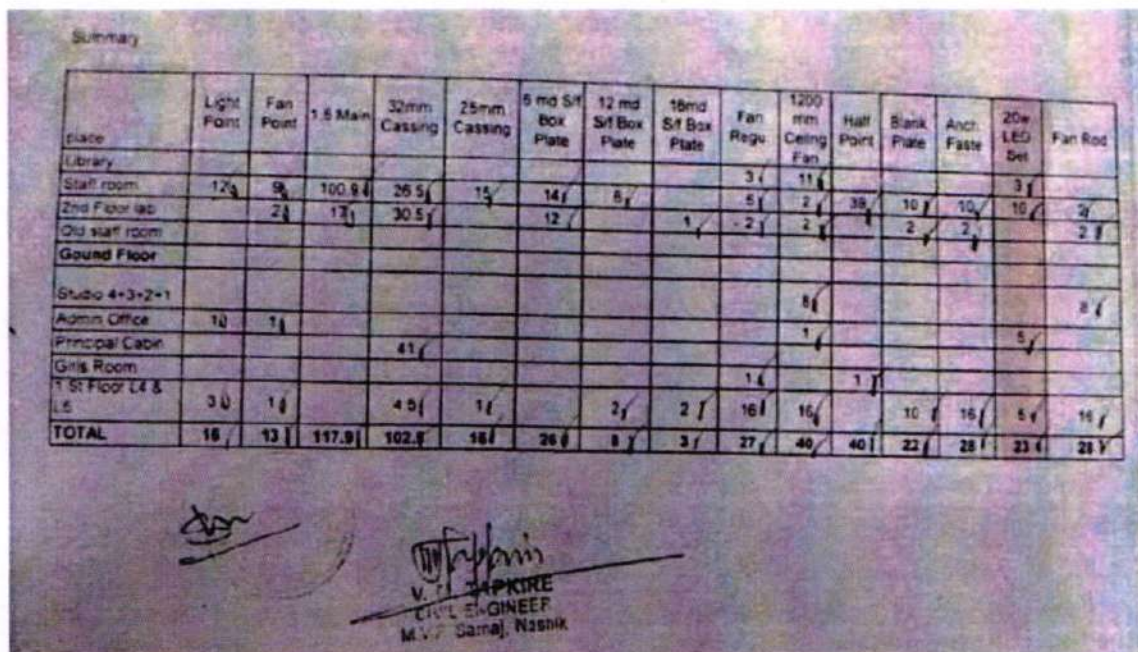 Summary
place Light Point Fan Point 1.5 Main 32mm Cassing 25mm Cassing 6 md S/f Box Plate 12 md S/f Box Plate 16md S/f Box Plate Fan Regu. 1200 mm Celing Fan Half Point Blank Plate Anch. Faste 20w LED Set Fan Rod
Library 3 11 3
Staff room 12 9 100.9 26.5 15 14 6 5 2 38 10 10 10 2
2nd Floor lab 2 17 30.5 12 1 2 2 2 2 2
Old staff room
Gound Floor
Studio 4+3+2+1 8 8
Admin Office 1 1 1 5
Principal Cabin 41
Girls Room 1 1
1 St Floor L4 & L5 3 1 4.5 1 2 2 16 16 10 16 5 16
TOTAL 16 13 117.9 102.5 16 26 8 3 27 40 40 22 28 23 28
CIVIL ENGINEER
Samaj, Nashik